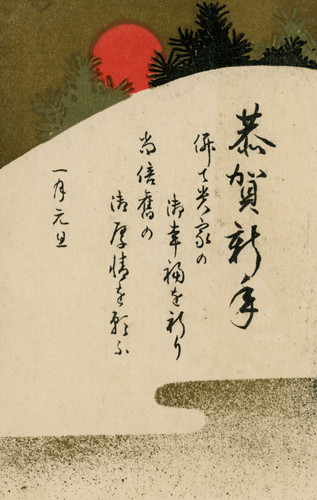 恭賀新年
併て貴家の
御幸福を祈り
尚倍舊の
御厚情を願ふ
一月元旦